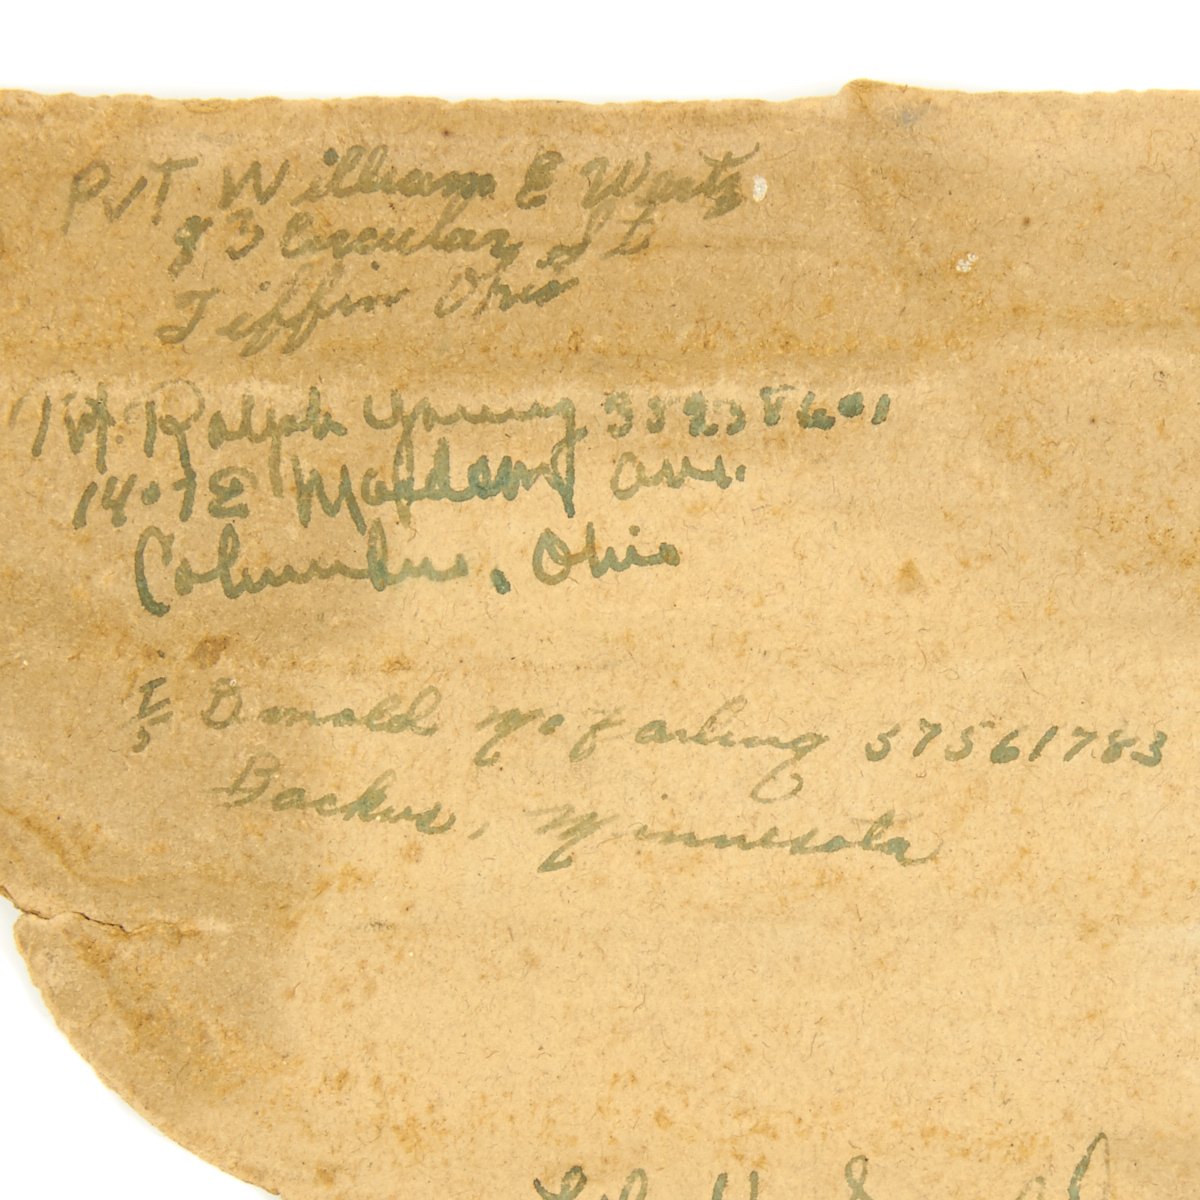 PVT William E Wertz
83 Circular St
Tiffin Ohio
Pvt. Ralph Young
1407 E Maddern Ave.
Columbus, Ohio
T/5 Donald McFarling 37561783
Backus, Minnesota